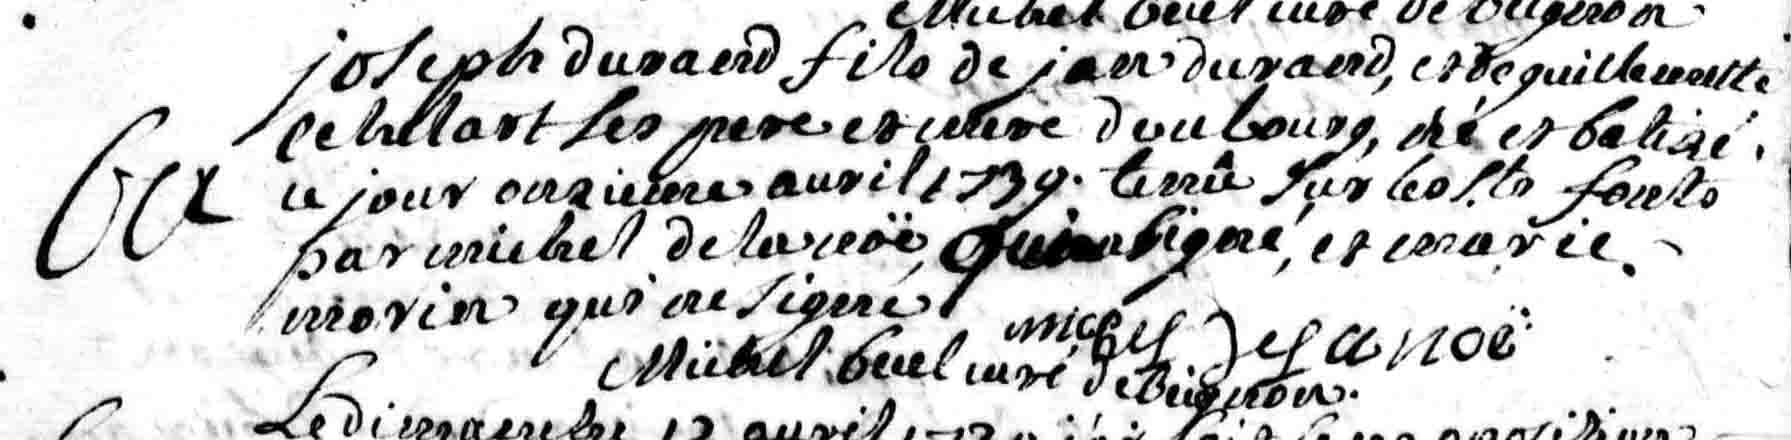 Michel buel curé de beignon
joseph durand fils de jan durand, et de guillemette
ses pere et mere du bourg, né et batisé
ce jour onzieme avril 1739. tenu sur les sts fonts
par michel de la noë, qui a signé, et marie
morin qui ne signe
michel De la noë
Michel buel curé de Beignon.
Le dimanche 12 avril